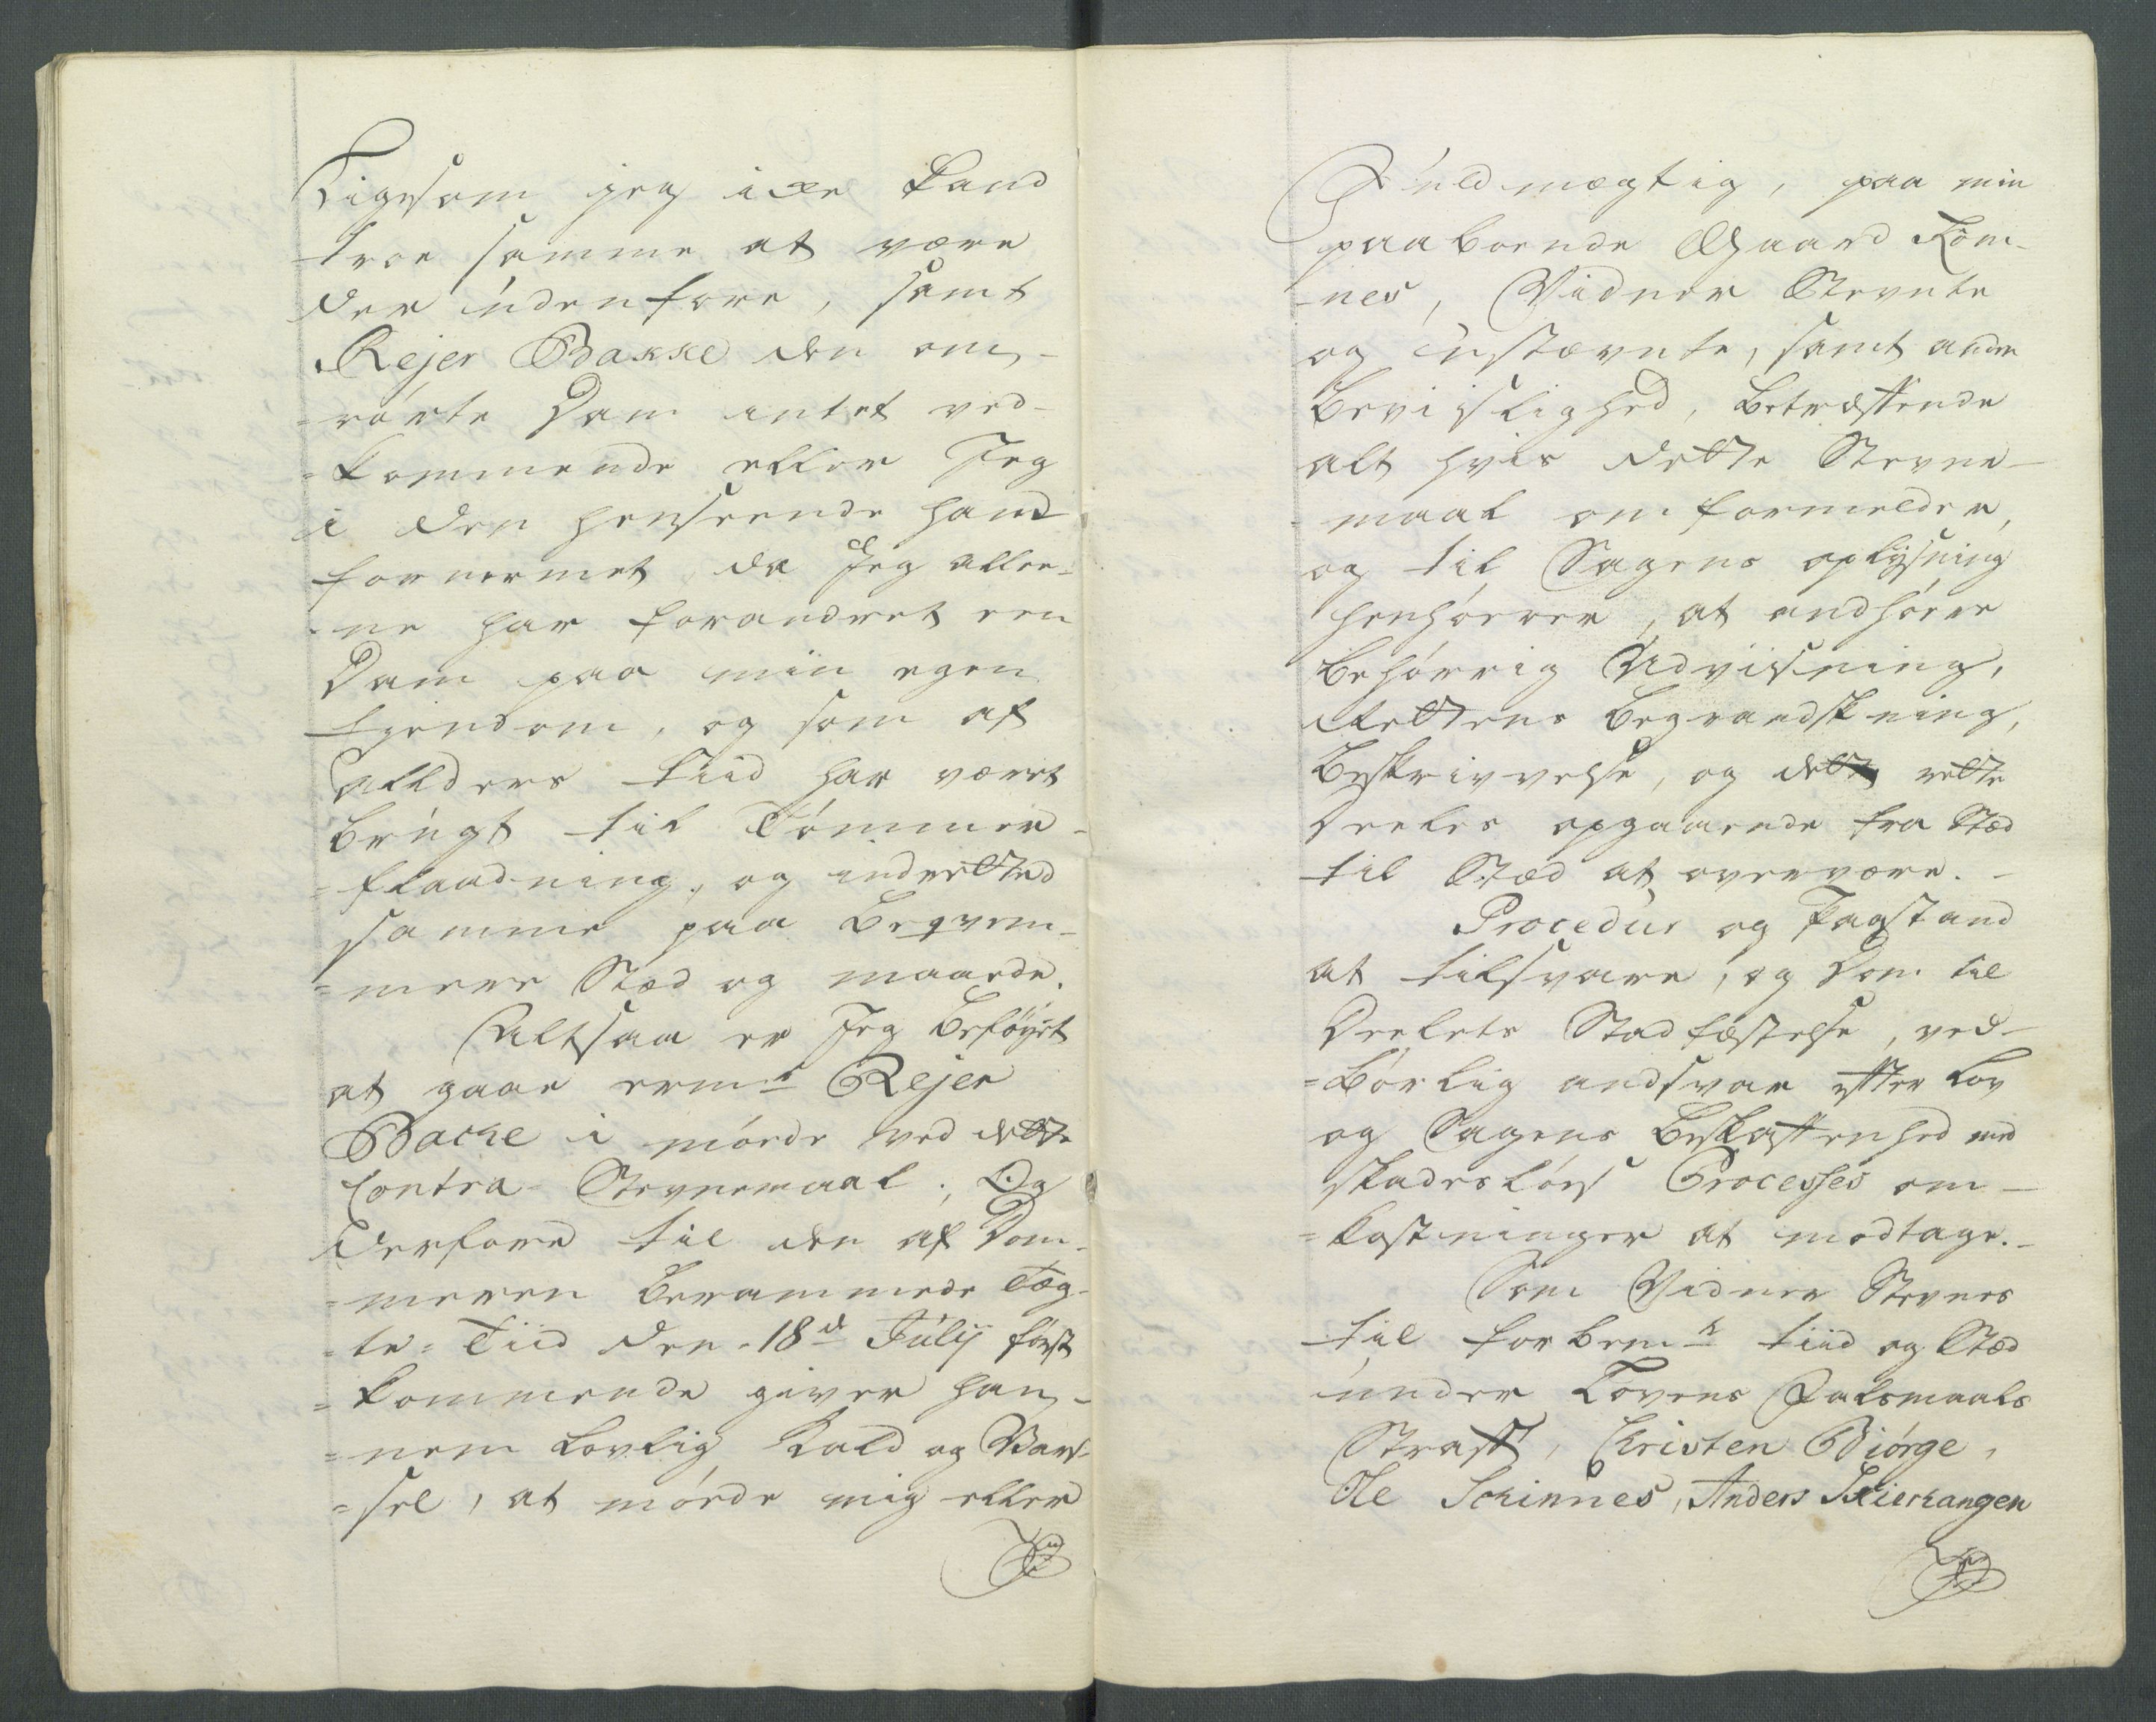 Ligesom jeg icke kand
troe samme at være
der indenfore, samt
Rejer Bakke den om-
=rørte Dam intet ved-
=kommende eller Jeg
i den henseende hand
fornermet, da Jeg allee-
=ne har forandret een
Dam paa min egen
Ejendom, og som af
allders tiid har været
brúgt til Tømmer-
=flaadning, og indretted
samme paa beqvem-
=mere Stæd og maade.
Altsaa er Jeg beføyet
at gaae ermte Rejer
Backe i møede ved dette
Contra-Stevnemaal; Og
derfore til den af Dom-
=meren berammede Tæg-
=te=Tiid den 18de Júlij først
=kommende giver han-
=nem lovlig Kald og Var-
=sel, at møede mig eller
Fúldmægtig, paa min
paaboende Gaard Rom-
-nes, Vidner Stevnte
og ústævnte, samt anden
beviislighed, betreffende
alt hvis dette Stevne-
=maal omformelder,
og til Sagens oplysning
henhøerer, at andhøere
behørrig Udviisning,
Rettens begrandskning,
beskrivvelse, og dette rette
Deeles opgaaende fra Stæd
til Stæd at overvære.-
Procedúr og Paastand
at tilsvare, og Dom til
Deelets Stadfæstelse, ved-
=børlig andsvar efter Lov
og Sagens beskaffenhed med
skadesløes Processes om-
=kostninger at modtage.-
Som Vidner Stevnes
til forbemte tiid og Stæd
únder Lovens Falsmaals
Straff, Christen Biørge,
Ole Schinnes, Anders Skierhangen